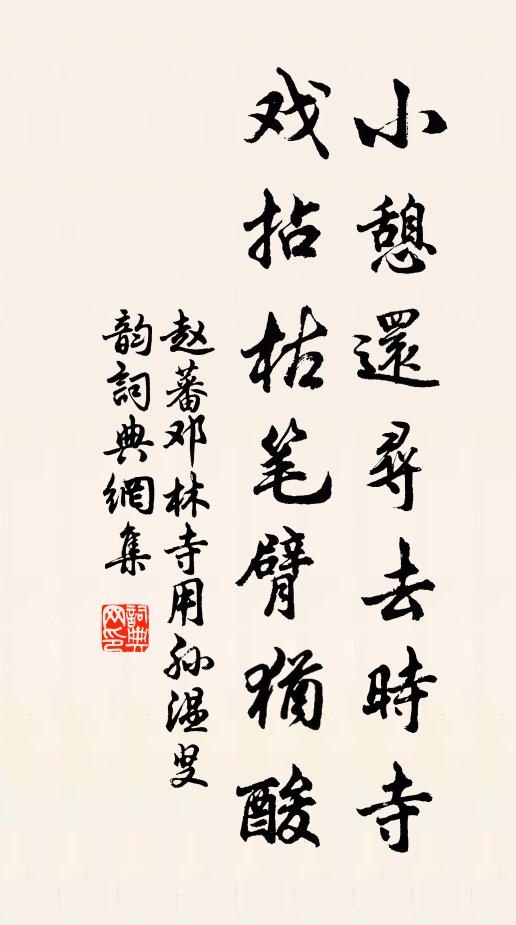 小憩還尋去時寺
戏拈枯笔臂猶酸
赵蕃邓林寺用孙温叟
韵詞典網集
詞典網印